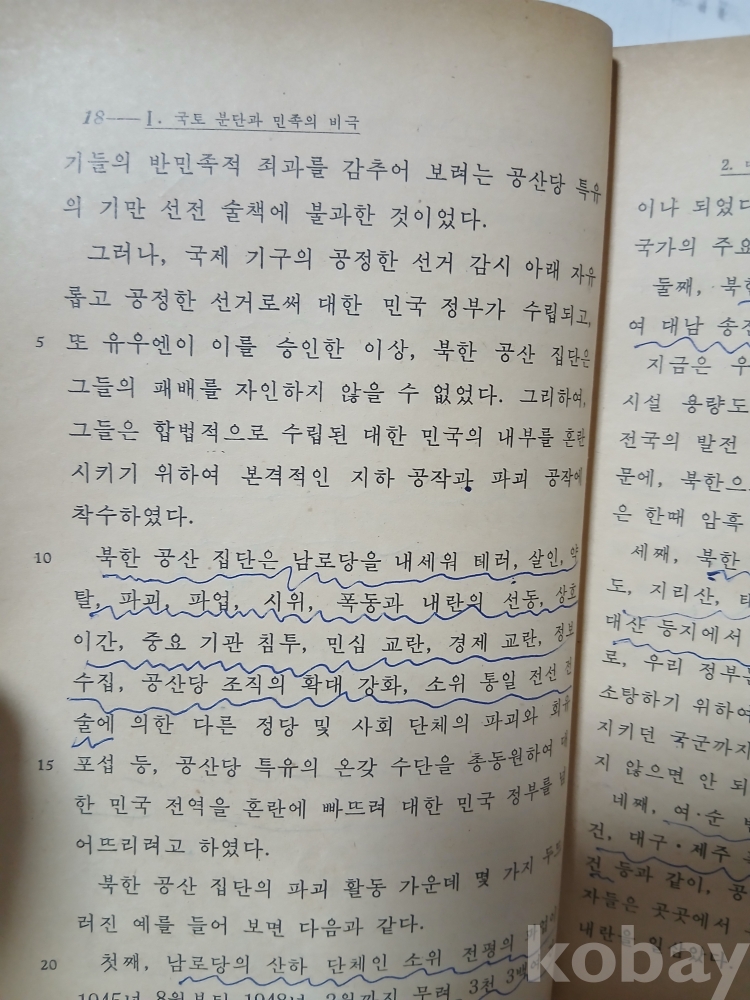 18 — I. 국토 분단과 민족의 비극
기들의 반민족적 죄과를 감추어 보려는 공산당 특유
의 기만 선전 술책에 불과한 것이었다.
그러나, 국제 기구의 공정한 선거 감시 아래 자유
롭고 공정한 선거로써 대한 민국 정부가 수립되고,
5 또 유우엔이 이를 승인한 이상, 북한 공산 집단은
그들의 패배를 자인하지 않을 수 없었다. 그리하여,
그들은 합법적으로 수립된 대한 민국의 내부를 혼란
시키기 위하여 본격적인 지하 공작과 파괴 공작에
착수하였다.
10 북한 공산 집단은 남로당을 내세워 테러, 살인, 약
탈, 파괴, 파업, 시위, 폭동과 내란의 선동, 상호
이간, 중요 기관 침투, 민심 교란, 경제 교란, 정보
수집, 공산당 조직의 확대 강화, 소위 통일 전선 전
술에 의한 다른 정당 및 사회 단체의 파괴와 회유
15 포섭 등, 공산당 특유의 온갖 수단을 총동원하여 대
한 민국 전역을 혼란에 빠뜨려 대한 민국 정부를 넘
어뜨리려고 하였다.
북한 공산 집단의 파괴 활동 가운데 몇 가지 두드
러진 예를 들어 보면 다음과 같다.
20 첫째, 남로당의 산하 단체인 소위 전평의
1945년 8월부터 1948년 2월까지 무려 3천 3백
2.
이나 되었다
국가의 주요
둘째, 북한
여 대남 송전
지금은 우
시설 용량도
전국의 발전
문에, 북한으
은 한때 암흑
세째, 북한
도, 지리산,
대산 등지에서
로, 우리 정부는
소탕하기 위하여
지키던 국군까지
지 않으면 안 되
네째, 여·순
건, 대구·제주
건 등과 같이, 공
자들은 곳곳에서
내란을
kobay